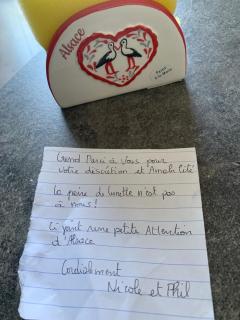 Alsace
Peint
à la Main
Grand Merci à vous pour
votre discrétion et Amabilité
La paire de lunette n'est pas
à nous!
Ci joint une petite Attention
d'Alsace
Cordialement
Nicole et Phil